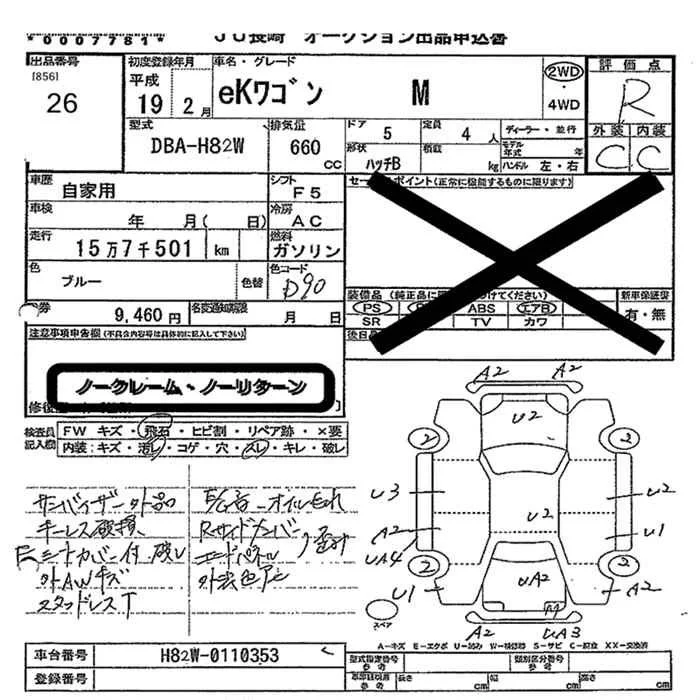 *0007781*
JU長崎 オークション出品申込書
出品番号 初度登録年月 車名・グレード 評価点
[856] 平成 eKワゴン M 2WD R
26 19 2月 ・4WD
外装 内装
型式 排気量 ドア 5 定員 4 人 ディーラー・並行 C C
DBA-H82W 660 CC 形状 ハッチB 積載 kg モデル年式 年
ハンドル 左・右
車歴 自家用 シフト F5 セールスポイント(正常に機能するものに限ります)
車検 年 月( 日) 冷房 AC
走行 15万7千501 km 燃料 ガソリン
色 ブルー 色替 色コード D90
券 9,460円 名変通知期限 月 日
装備品 新車保証書
PS ABS エアB 有・無
SR TV カワ
注意事項申告欄(不具合内容等は具体的に記入して下さい)
ノークレーム・ノーリターン
検査員記入欄
FW キズ・飛石・ヒビ割・リペア跡・×要
内装:キズ・汚レ・コゲ・穴・スレ・キレ・破レ
サンバイザー外品
キーレス破損
シートカバー付 破レ
外AWキズ
スタッドレスT
オイルもれ
Rサイドメンバー
エンドパネル
A2 A2
U2
2 2
U3 U2 U2
A2 U1
UA4
2 UA2 2
U1 A2
M
スペア A2 UA3
A-キズ E-エクボ U-凹み W-補修跡 S-サビ C-腐食 XX-交換済
車台番号 H82W-0110353
登録番号
型式指定番号 参考 類別区分番号 参考
車両寸法 参考 長さ cm 幅 cm 高さ cm